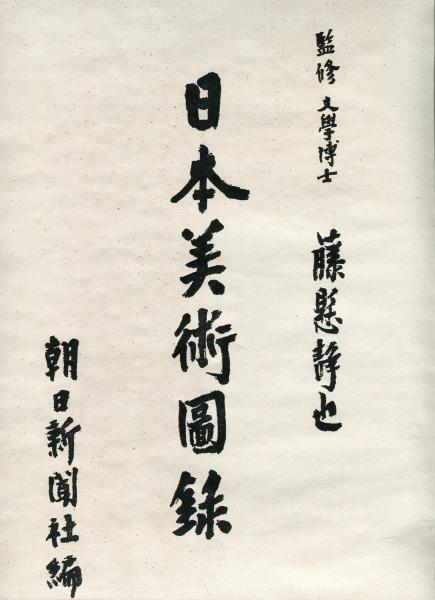 監修 文學博士 藤懸靜也
日本美術圖錄
朝日新聞社編